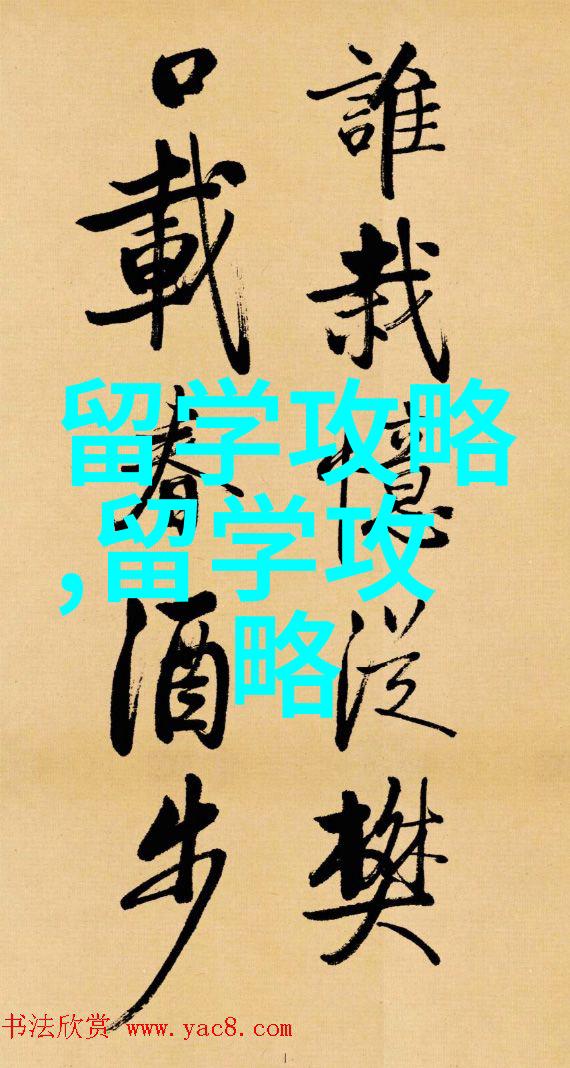 誰栽憶從樊
口載春酒步
留学攻略
,留学攻
略
书法欣赏 www.yac8.com